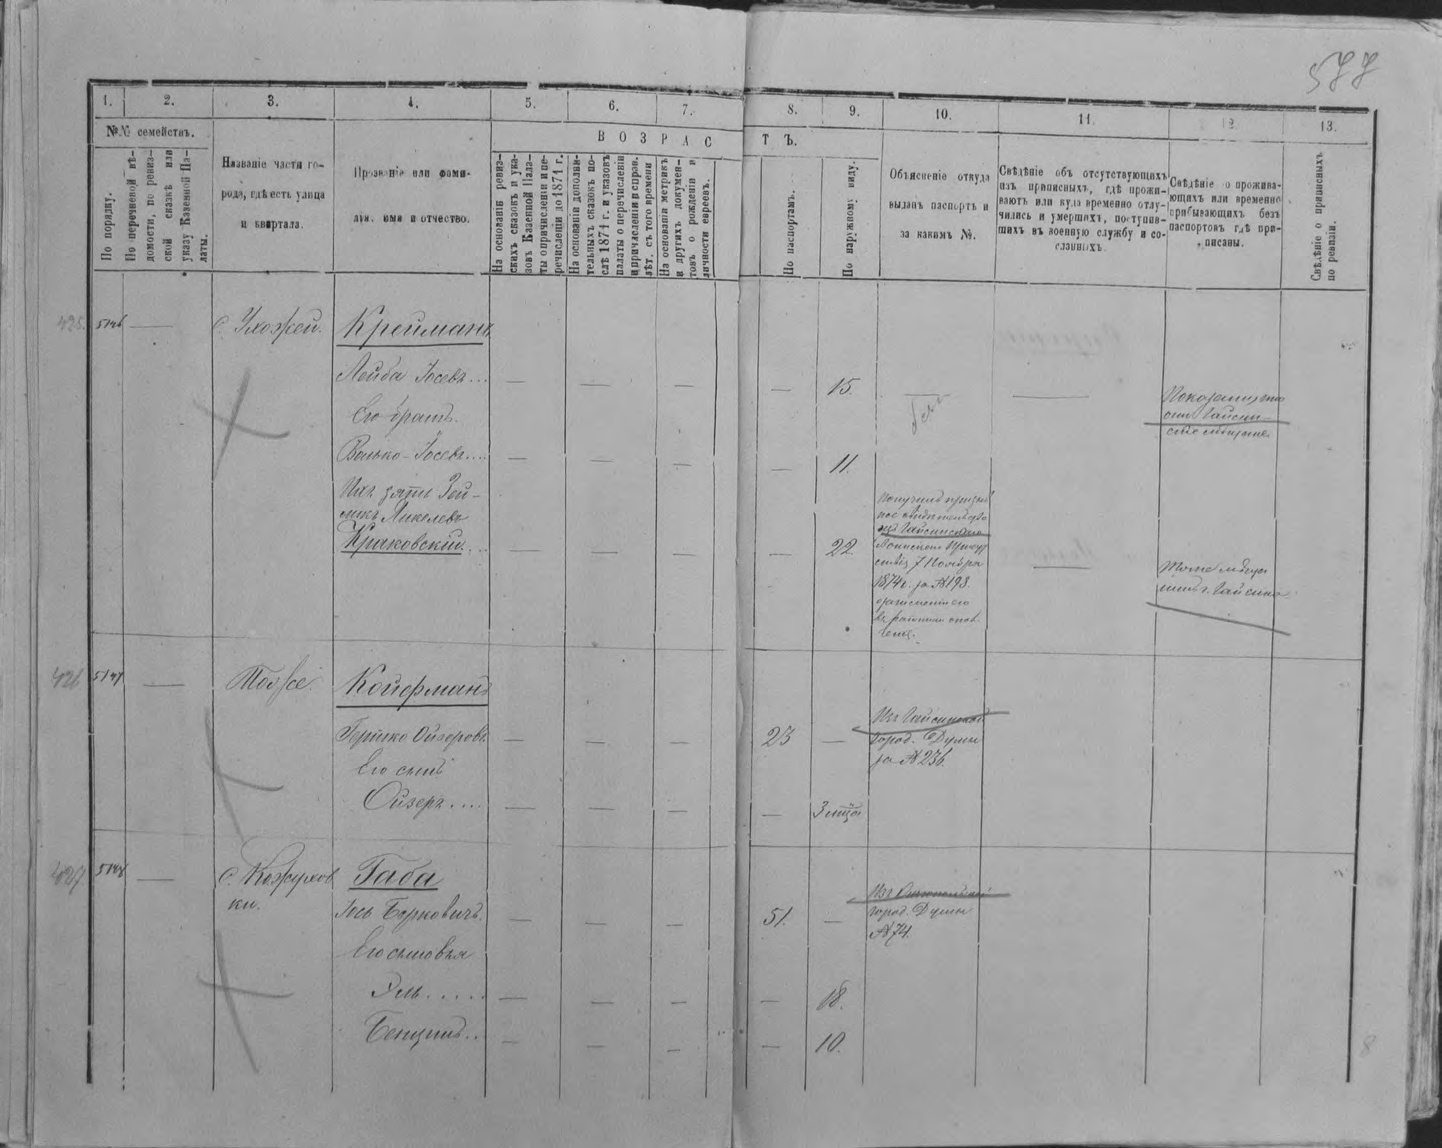 577
1. 2. 3. 4. 5. 6. 7. 8. 9. 10. 11. 12. 13.
№№ семействъ.
В О З Р А С Т Ъ.
По порядку.
По перечневой вѣ-
домости, по ревиз-
ской сказкѣ или
указу Казенной Па-
латы.
Названіе части го-
рода, гдѣ есть улица
и квартала.
Прозваніе или фами-
лія, имя и отчество.
На основаніи ревиз-
скихъ сказокъ и ука-
зовъ Казенной Пала-
ты о причисленіи и пе-
речисленіи до 1874 г.
На основаніи дополни-
тельныхъ сказокъ по-
слѣ 1874 г. и указовъ
палаты о перечисленіи
и причисленіи и справ.
лѣт. съ того времени
На основаніи метрикъ
и другихъ докумен-
товъ о рожденіи и
личности евреевъ.
По паспортамъ.
По наружному виду.
Объясненіе откуда
выданъ паспортъ и
за какимъ №.
Свѣдѣніе объ отсутствующихъ
изъ приписныхъ, гдѣ прожи-
ваютъ или куда временно отлу-
чились и умершихъ, поступив-
шихъ въ военную службу и со-
сланныхъ.
Свѣдѣніе о прожива-
ющихъ или временно
прибывающихъ безъ
паспортовъ гдѣ при-
писаны.
Свѣдѣніе о приписныхъ
по ревизіи.
425. 5146 — с. Ухожей. Крейманъ
Лейба Іосевъ... — — — — 15. — —
Его братъ
Волько Іосевъ.... — — — — 11.
Ихъ зять Зей-
Краковскій... — — — — 22 —
изъ Гайсинскаго
7 Ноября
1874 г. за №193.
426 5147 — Тоже Койфманъ
Гутко Ойзеровъ — — — 23 —
Изъ Гайсинской
город. Думы
за №236.
Его сынъ
Ойзеръ.... — — — — 3 мцѣ
427 5148 — с. Кожухов
ки. Габа
Іось Берковичъ — — — 51. —
город. Думы
№74.
Его сыновья
Эль..... — — — — 18.
Бенціонъ.. — — — — 10.
8